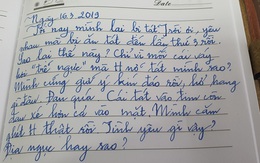 Date
Ngày 16.3.2019
Th nay mình lại bị tát. Trời ơi, yêu
nhau mà bị ăn tát đến lần thứ 3 rồi.
Sao lại thế này? Chỉ vì mỗi cái váy
hơi "trễ ngực" mà H nó tát mình sao?
Mình cũng giữ ý kín đáo rồi, hở hang
gì đâu. Đau quá. Cái tát vào tim còn
đau xé hơn cả vào mặt. Mình căm
ghét H thật rồi. Tình yêu gì vậy?
Địa ngục hay sao?